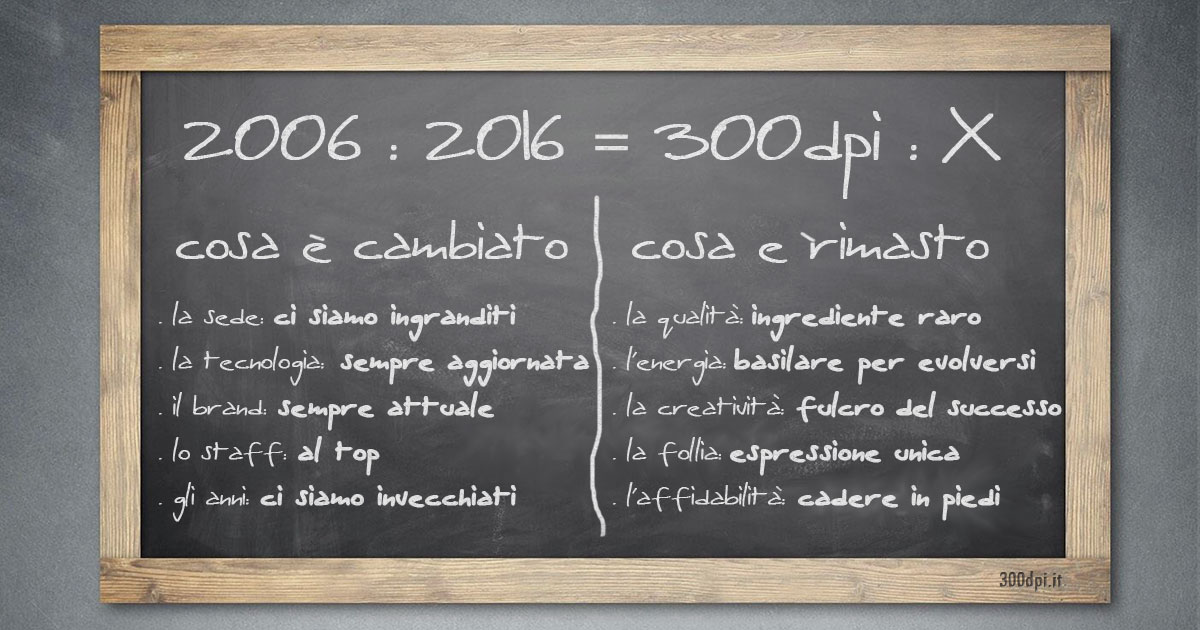 2006 : 2016 = 300dpi : X
cosa è cambiato
. la sede: ci siamo ingranditi
. la tecnologia: sempre aggiornata
. il brand: sempre attuale
. lo staff: al top
. gli anni: ci siamo invecchiati
cosa e ̀rimasto
. la qualità: ingrediente raro
. l'energia: basilare per evolversi
. la creatività: fulcro del successo
. la follia: espressione unica
. l'affidabilità: cadere in piedi
300dpi.it